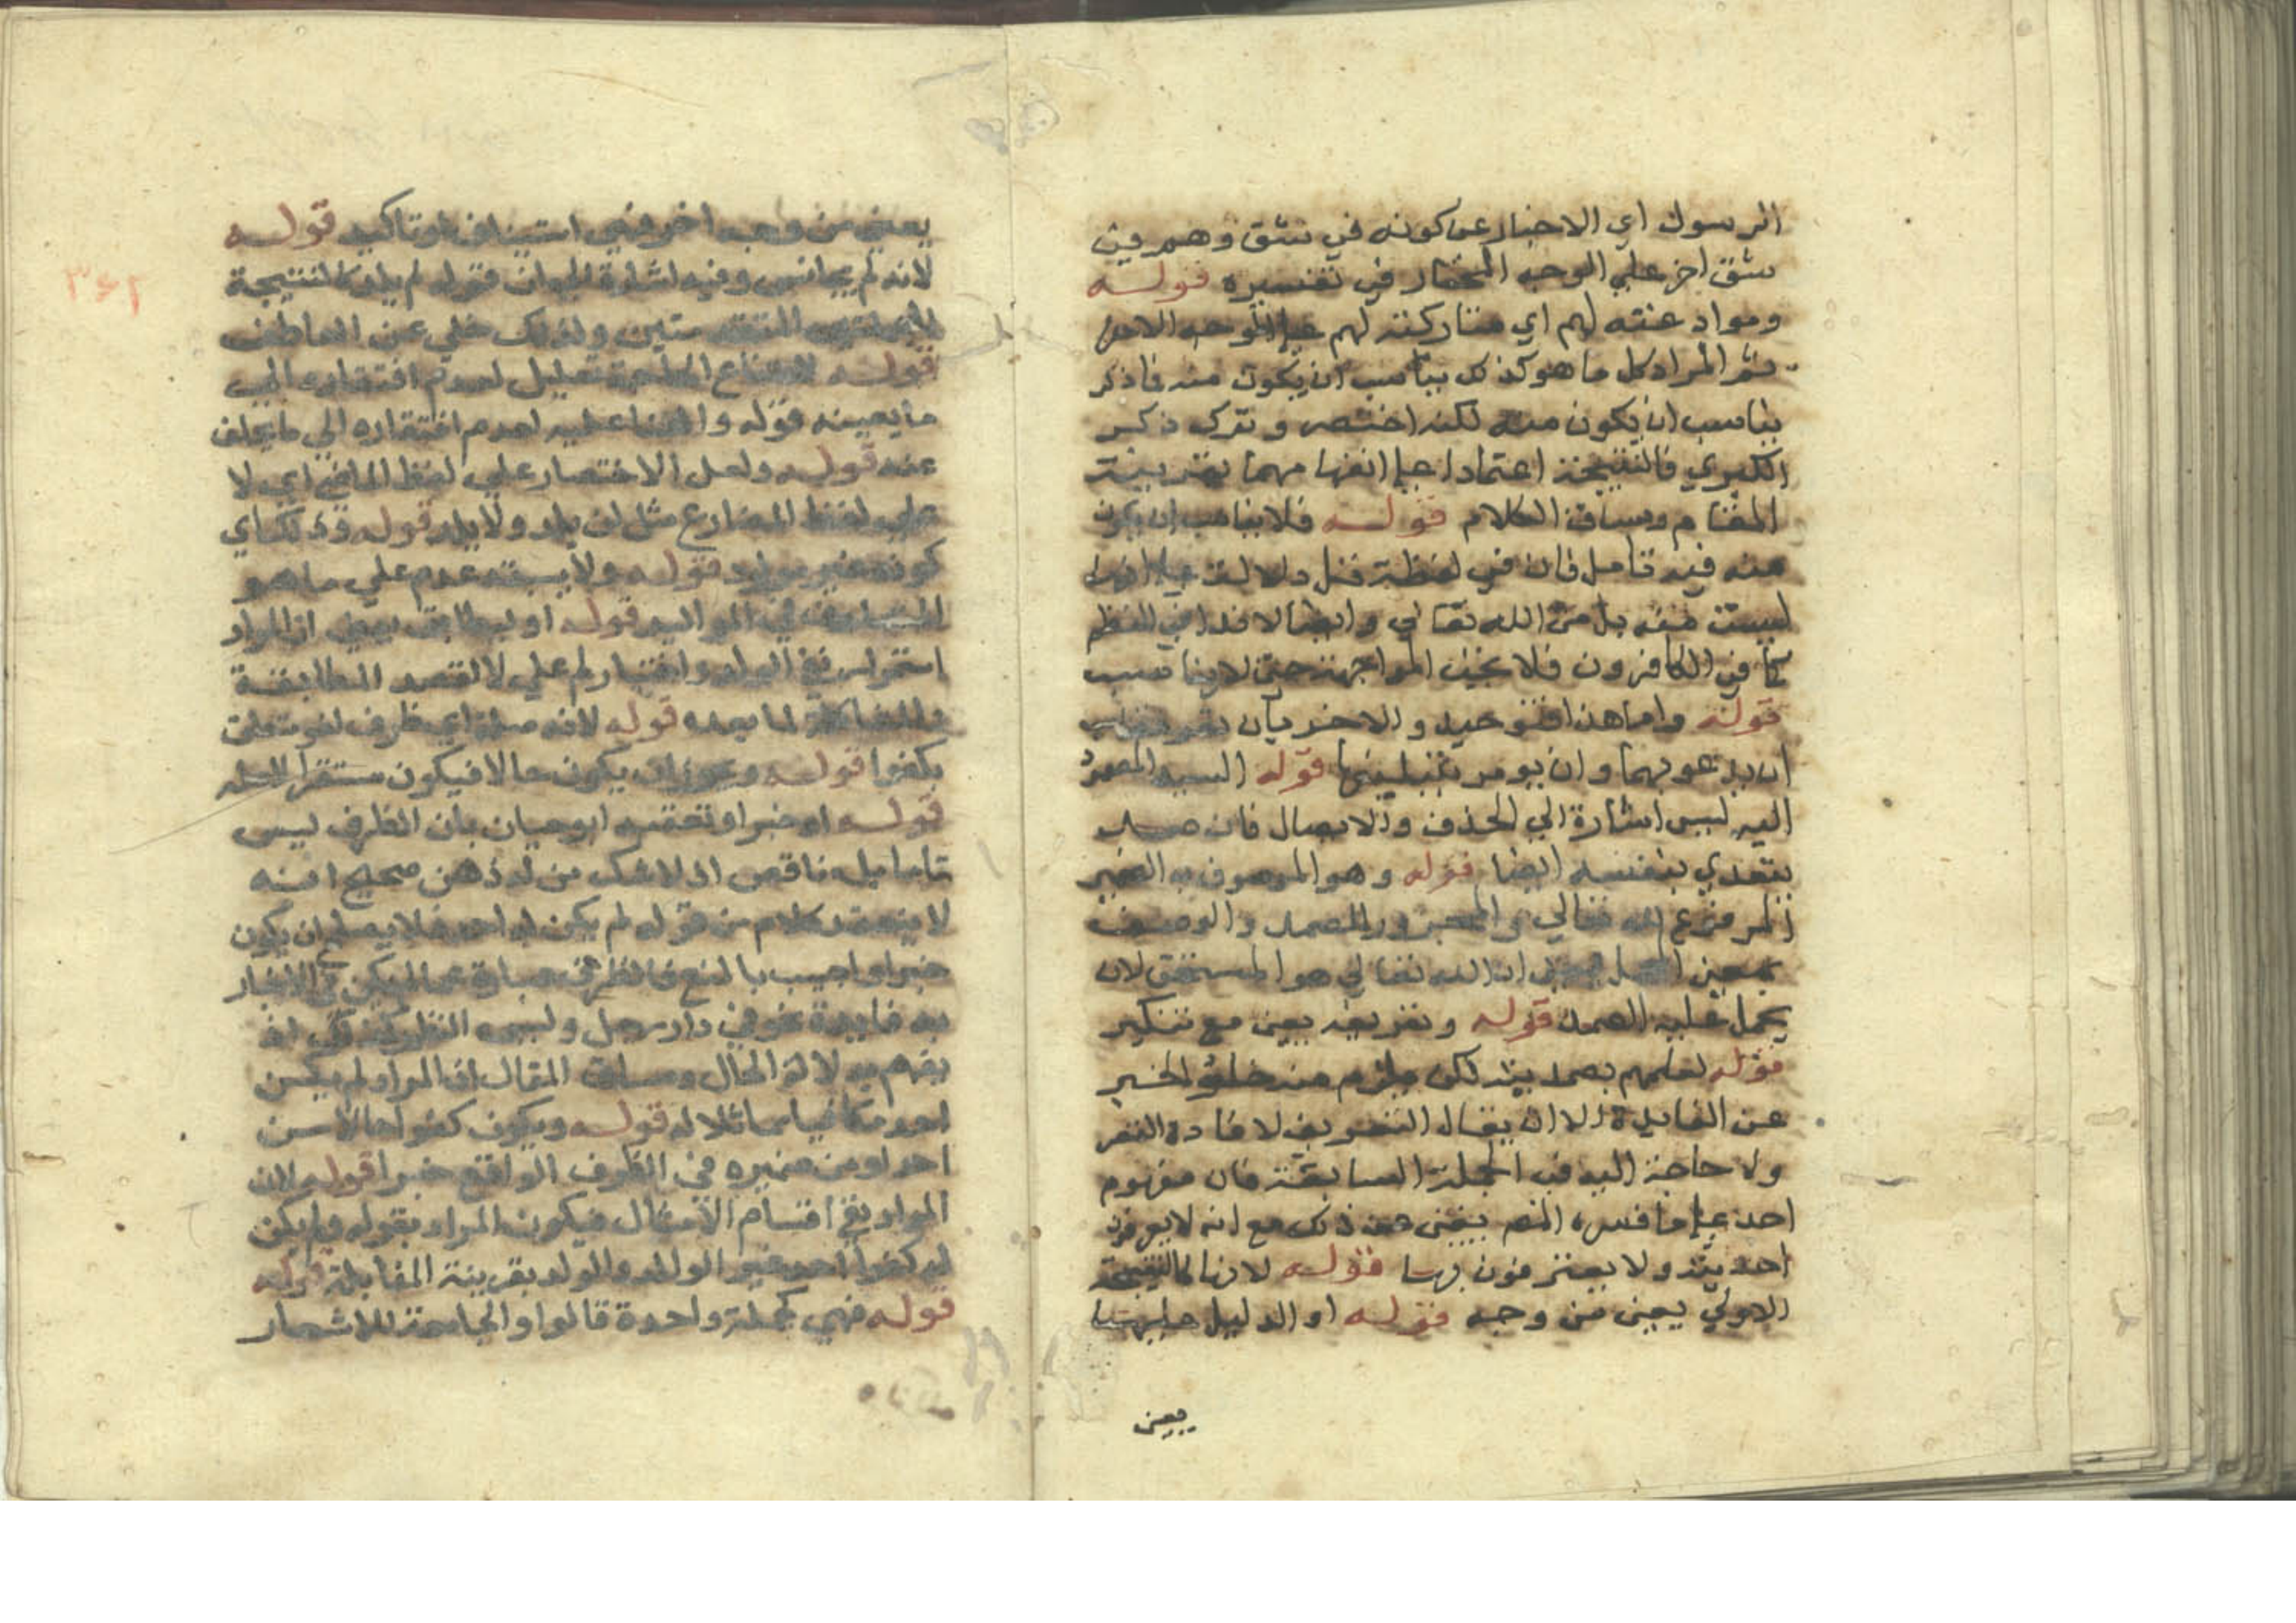 الرسول اي الاخبار عن كونه في شق وهم في
شق اخر علي الوجه المختار في تفسيره قوله
وموادعته لهم اي متاركته لهم علي الوجه الاخر
ثم المراد كل ما هو كذلك يناسب ان يكون منه فاذكر
يناسب ان يكون منه لكنه اختصر وترك ذكر
الكبري فالنتيجة اعتمادا علي انفهامهما بقرينة
المقام ومساق الكلام قوله فلا يناسب ان يكون
منه فيه تامل فان في لفظة قل دلالة علي انها
ليست منه بل من الله تعالي وايضا لا نداء في النظم
كما في الكافرون فلا المواجهة حتي لا يناسب
قوله واما هذا فتوحيد والاخر بان
ان يدعو بهما وان يومر بتبليغها قوله السيد المصمود
اليه ليس اشارة الي الحذف والايصال فان صمد
يتعدي بنفسه ايضا قوله وهو الموصوف به الضمير
المرفوع لله تعالي والمجرور للصمد والوصف
بمعني الحمل يعني ان الله تعالي هو المستحق لان
يحمل عليه الصمد قوله وتعريفه يعني مع تنكير
قوله لعلمهم بصمديته لكن يلزم منه خلو الخبر
عن الفايدة الا ان يقال التعريف لافادة القصر
ولا حاجة اليه في الجملة السابقة فان مفهوم
احد علي ما فسره المص يغني عن ذلك مع انه لا يعرفون
احديته ولا يعترفون بها قوله لانها كالنتيجة
الاولي يعني من وجه قوله او الدليل عليها
يعني
يعني من وجه اخر فهي استيناف او تاكيد قوله
لانه لم يجانس وفيه اشارة الي ان قوله لم يلد كالنتيجة
للجملتين المتقدمتين ولذلك خلي عن العاطف
قوله لامتناع الحاجة تعليل لعدم افتقاره الي
ما يعينه قوله والفناء عليه لعدم افتقاره الي ما يخلف
عنه قوله ولعل الاختصار علي لفظ الماضي اي لا
علي لفظ المضارع مثل لن يلد ولا يلد قوله وذلك اي
كونه غير مولود قوله ولا يسبقه عدم علي ما هو
في المواليد قوله او ليطابق يعني ان المراد
استمرار نفي الولد واختيار لم علي لا لقصد المطابقة
والمشاكلة لما بعده قوله لانه صلة اي ظرف لغو متعلق
بكفوا قوله ويجوز ان يكون حالا فيكون مستقرا
قوله او خبرا وتعقبه ابو حيان بان الظرف ليس
تاما بل ناقص اذ لا شك من له ذهن صحيح انه
لا ينعقد كلام من قوله لم يكن له احد فلا يصلح ان يكون
خبرا واجيب بالمنع فالظرف عبارة عما لم يكن في الاخبار
به فايدة نحو في دار رجل وليس الظرف كذلك اذ
يفهم بدلالة الحال ومساق المقال ان المراد لم يكن
احد مكافيا مماثلا له قوله ويكون كفوا حالا من
احد او من ضميره في الظرف الواقع خبرا قوله لان
المراد نفي اقسام الامثال فيكون المراد بقوله ولم يكن
له كفوا احد غير الوالد والولد بقرينة المقابلة قوله
قوله فهي كجملة واحدة قالوا والجامعة للاشعار
٣٤٢